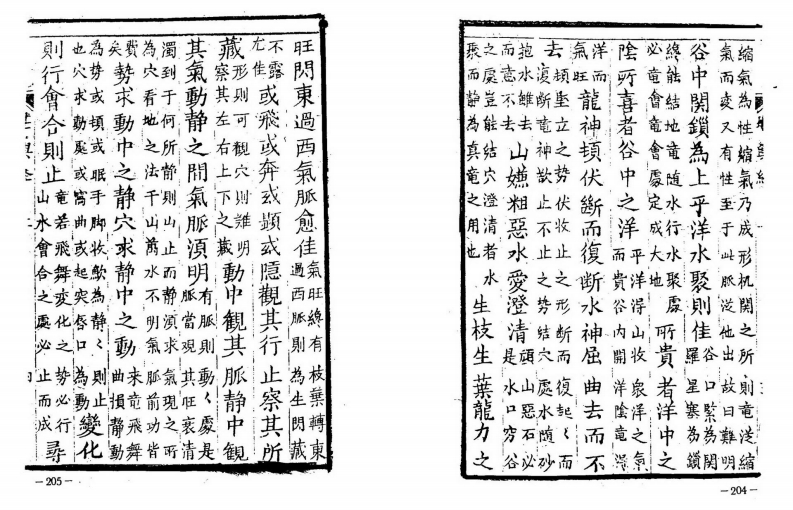 縮氣為性縮氣乃成形机関之所則竜漟縮
氣而変又有性至于此脈漟他出故曰難明
谷中関鎖為上平洋水聚則佳谷口緊為関
羅星塞為鎖
終能結地竜随水行水聚處
必竜會竜會處定成大地所貴者洋中之
陰所喜者谷中之洋平洋得山收衆洋之氣
而貴谷内開洋陰竜得
洋而
氣旺龍神頓伏斷而復斷水神屈曲去而不
去頓堅立之势伏收止之形断而復起〱而
復断竜神欲止不止之势結穴處水随砂
抱水雖去
而意不去山嫌粗惡水愛澄清頑山惡石必
是水口穷谷
之處豈能結穴澄清者水
聚而静為真竜之用也生枝生葉龍力之
－204－
旺閃東過西氣脈愈佳氣旺縂有枝葉轉東
過西脈則為生閃藏
不露
尤佳或飛或奔或顕或隱觀其行止察其所
藏形則可觀穴則難明
察其左右上下之藏動中觀其脈静中觀
其氣動静之間氣脈湏明有脈則動〱處是
脈當观其旺衰清
濁到于何所静則山止而静湏求氣現之所
為穴看地之法千山萬水不明氣脈前功皆
費
矣勢求動中之静穴求静中之動來竜飛舞
曲損静動
為势或頓或眠手脚收歛為静〱則止
也穴求動處或窩曲或起突唇口為動變化
則行會合則止竜若飛舞変化之势必行
山水會合之處必止而成尋
－205－